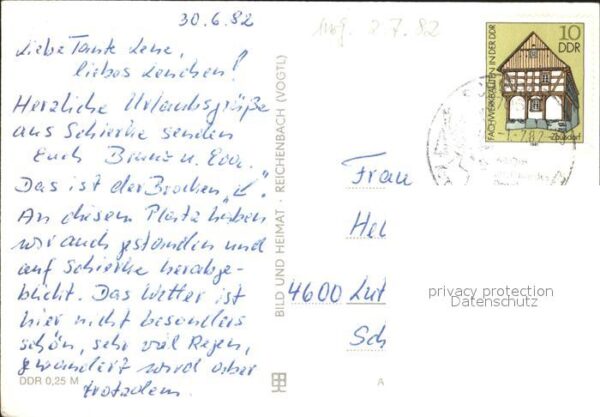 30.6.82
Liebe Tante Lene,
liebes Lenchen!
Herzliche Urlaubsgrüße
aus Schierke senden
Euch
u. Eva.
Das ist der Brocken "↙".
An diesem Platz haben
wir auch gestanden und
auf Schierke herabge-
blickt. Das Wetter ist
hier nicht besonders
schön, sehr viel Regen,
gewandert wird aber
trotzdem.
DDR 0,25 M
BILD UND HEIMAT · REICHENBACH (VOGTL)
A
2.7.82
FACHWERKBAUTEN IN DER DDR
10
DDR
Zaulsdorf
Frau
Hei
4600 Lut
Sch
privacy protection
Datenschutz